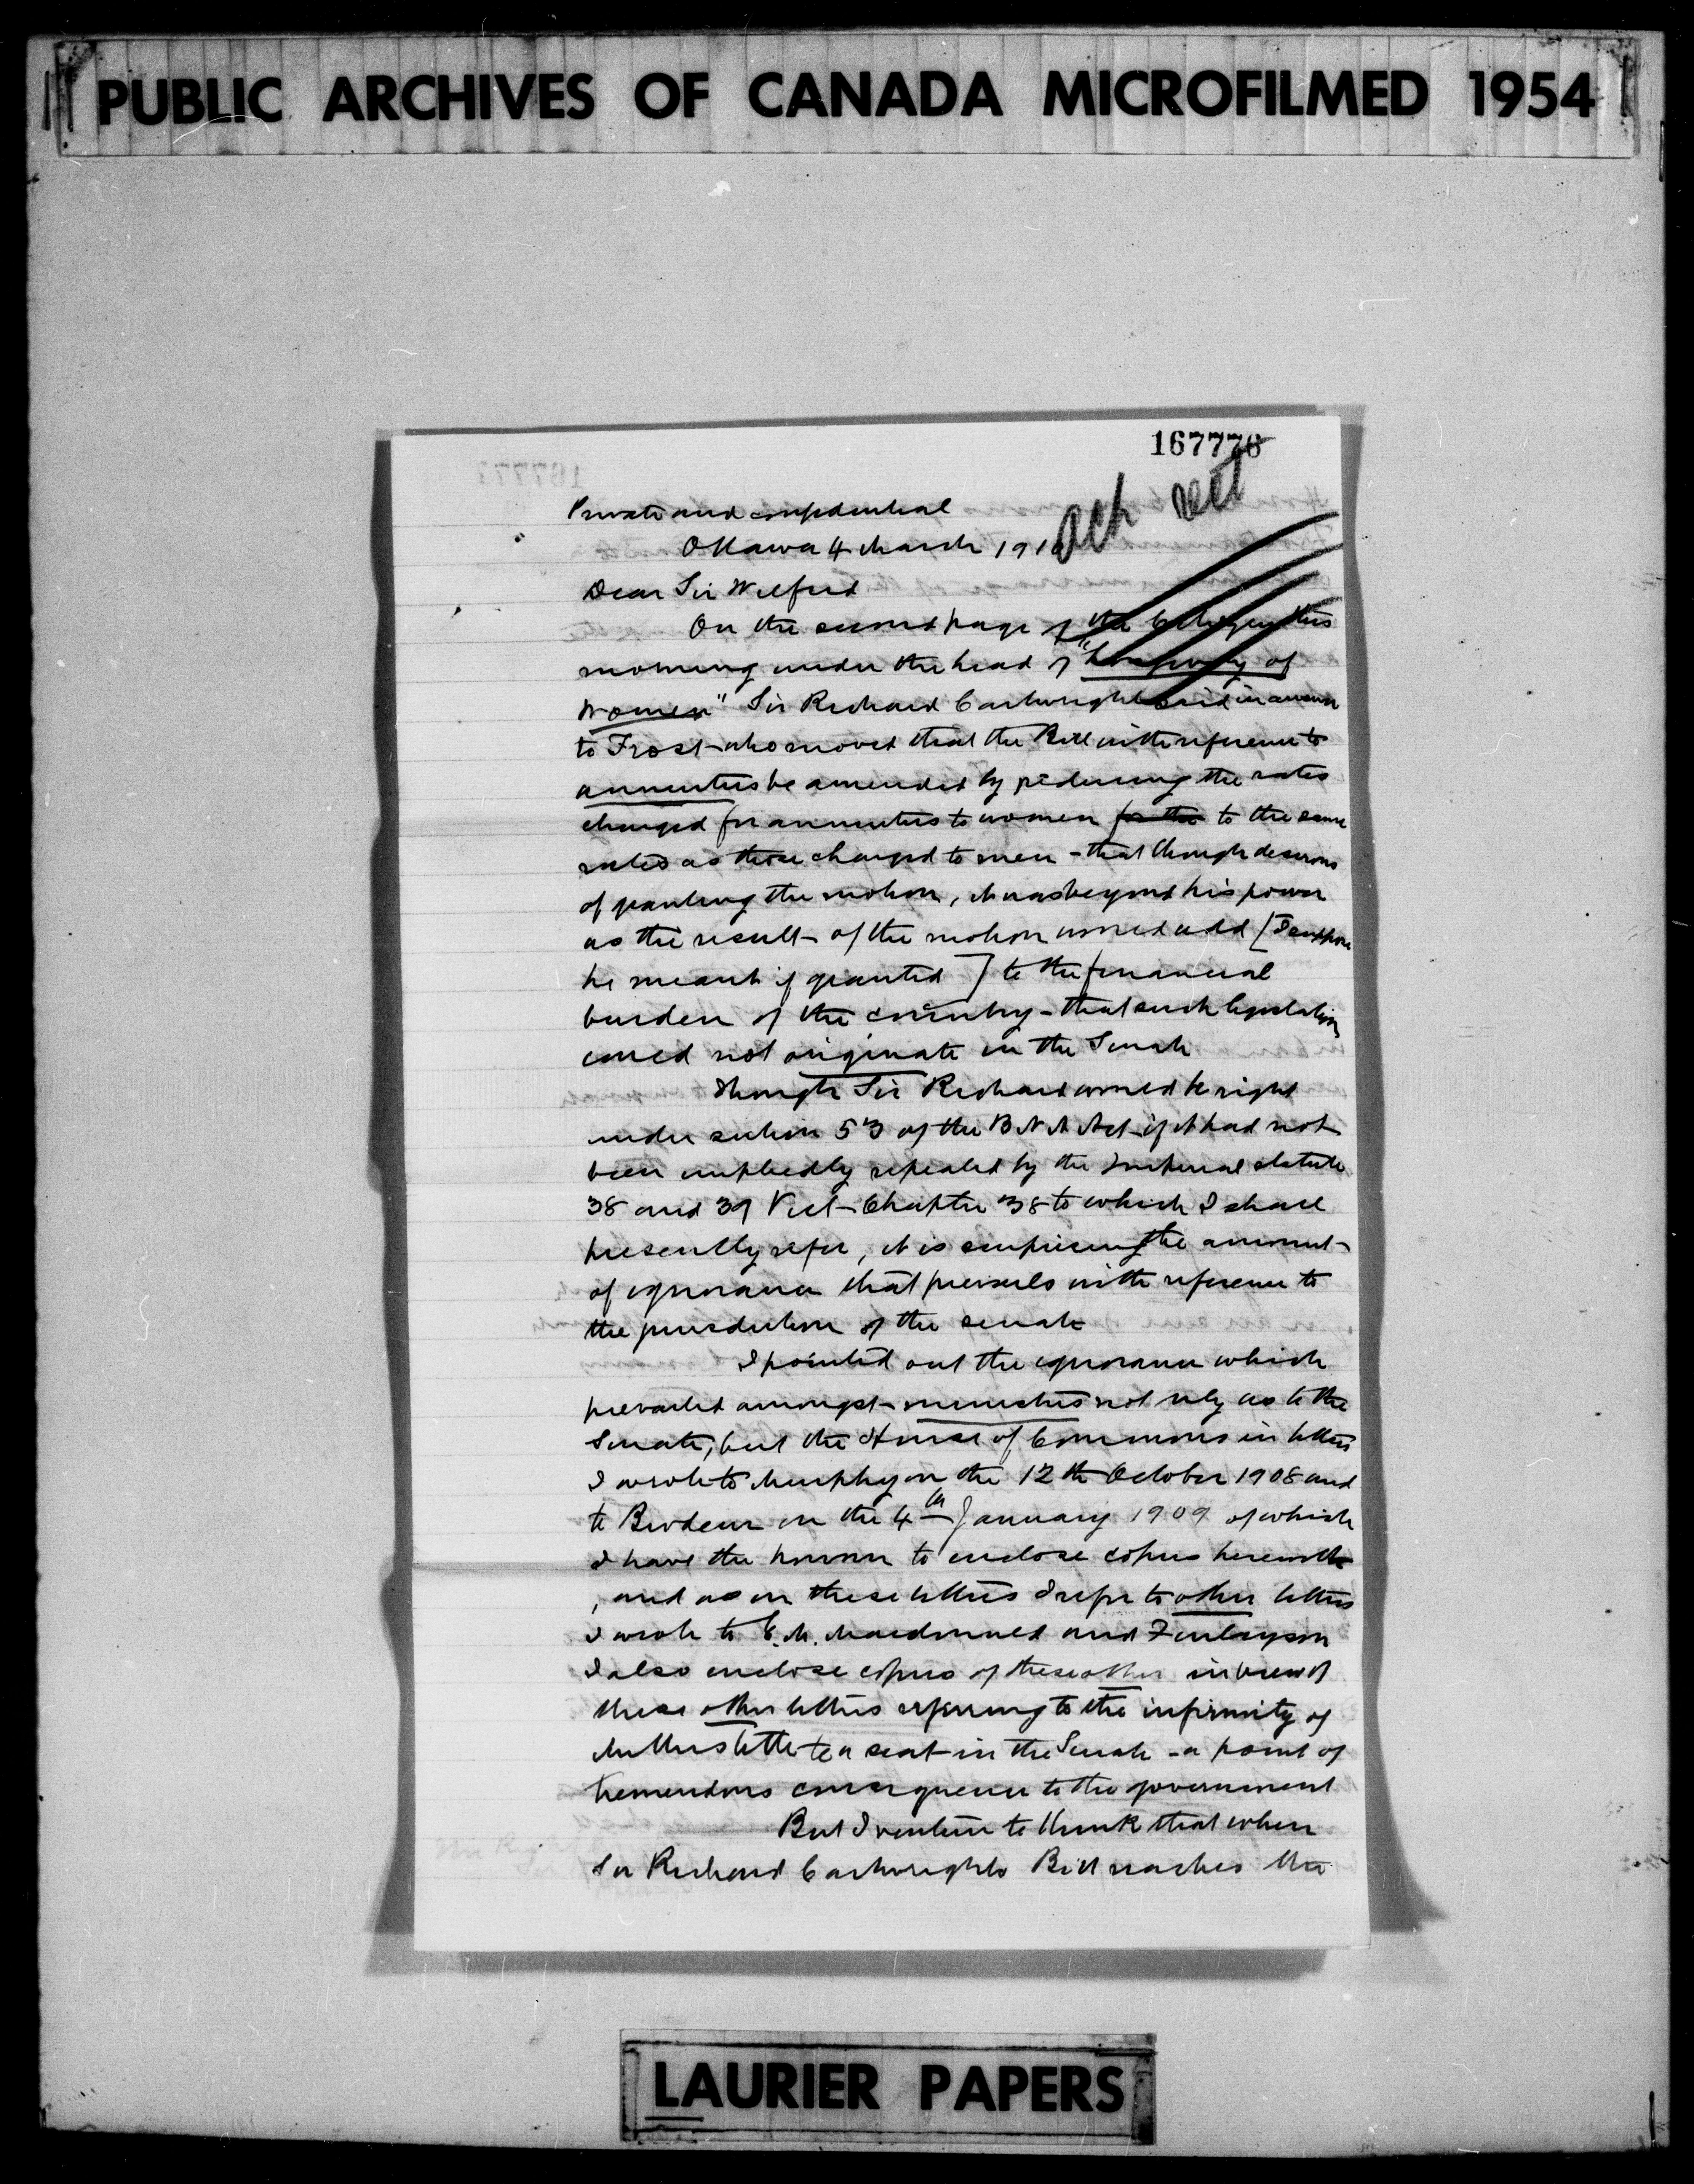 PUBLIC ARCHIVES OF CANADA MICROFILMED 1954
167776
Private and confidential
Ottawa 4 March 1910
Dear Sir Wilfrid
On the second page of the Citizen this
morning under the head of "Longevity of
Women" Sir Richard Cartwright said in answer
to Frost who moved that the Bill with reference to
annuities be amended by reducing the rates
charged for annuities to women for the to the same
rates as those charged to men - that though desirous
of granting the motion, it was beyond his power
as the result of the motion would add [I suppose
he meant if granted] to the financial
burden of the country - that such legislation
could not originate in the Senate
Though Sir Richard would be right
under section 53 of the B N A Act if it had not
been impliedly repealed by the Imperial statute
38 and 39 Vict Chapter 38 to which I shall
presently refer, it is surprising the amount
of ignorance that prevails with reference to
the jurisdiction of the senate
I pointed out the ignorance which
prevailed amongst ministers not only as to the
Senate, but the House of Commons in letters
I wrote to Murphy on the 12th October 1908 and
to Brodeur on the 4th January 1909 of which
I have the honour to enclose copies herewith
, and as in these letters I refer to other letters
I wrote to E.M. Macdonald and Finlayson
I also enclose copies of these other in view of
these other letters referring to the infirmity of
title to a seat in the Senate - a point of
tremendous consequence to the government
But I venture to think that when
Sir Richard Cartwrights Bill reaches the
LAURIER PAPERS